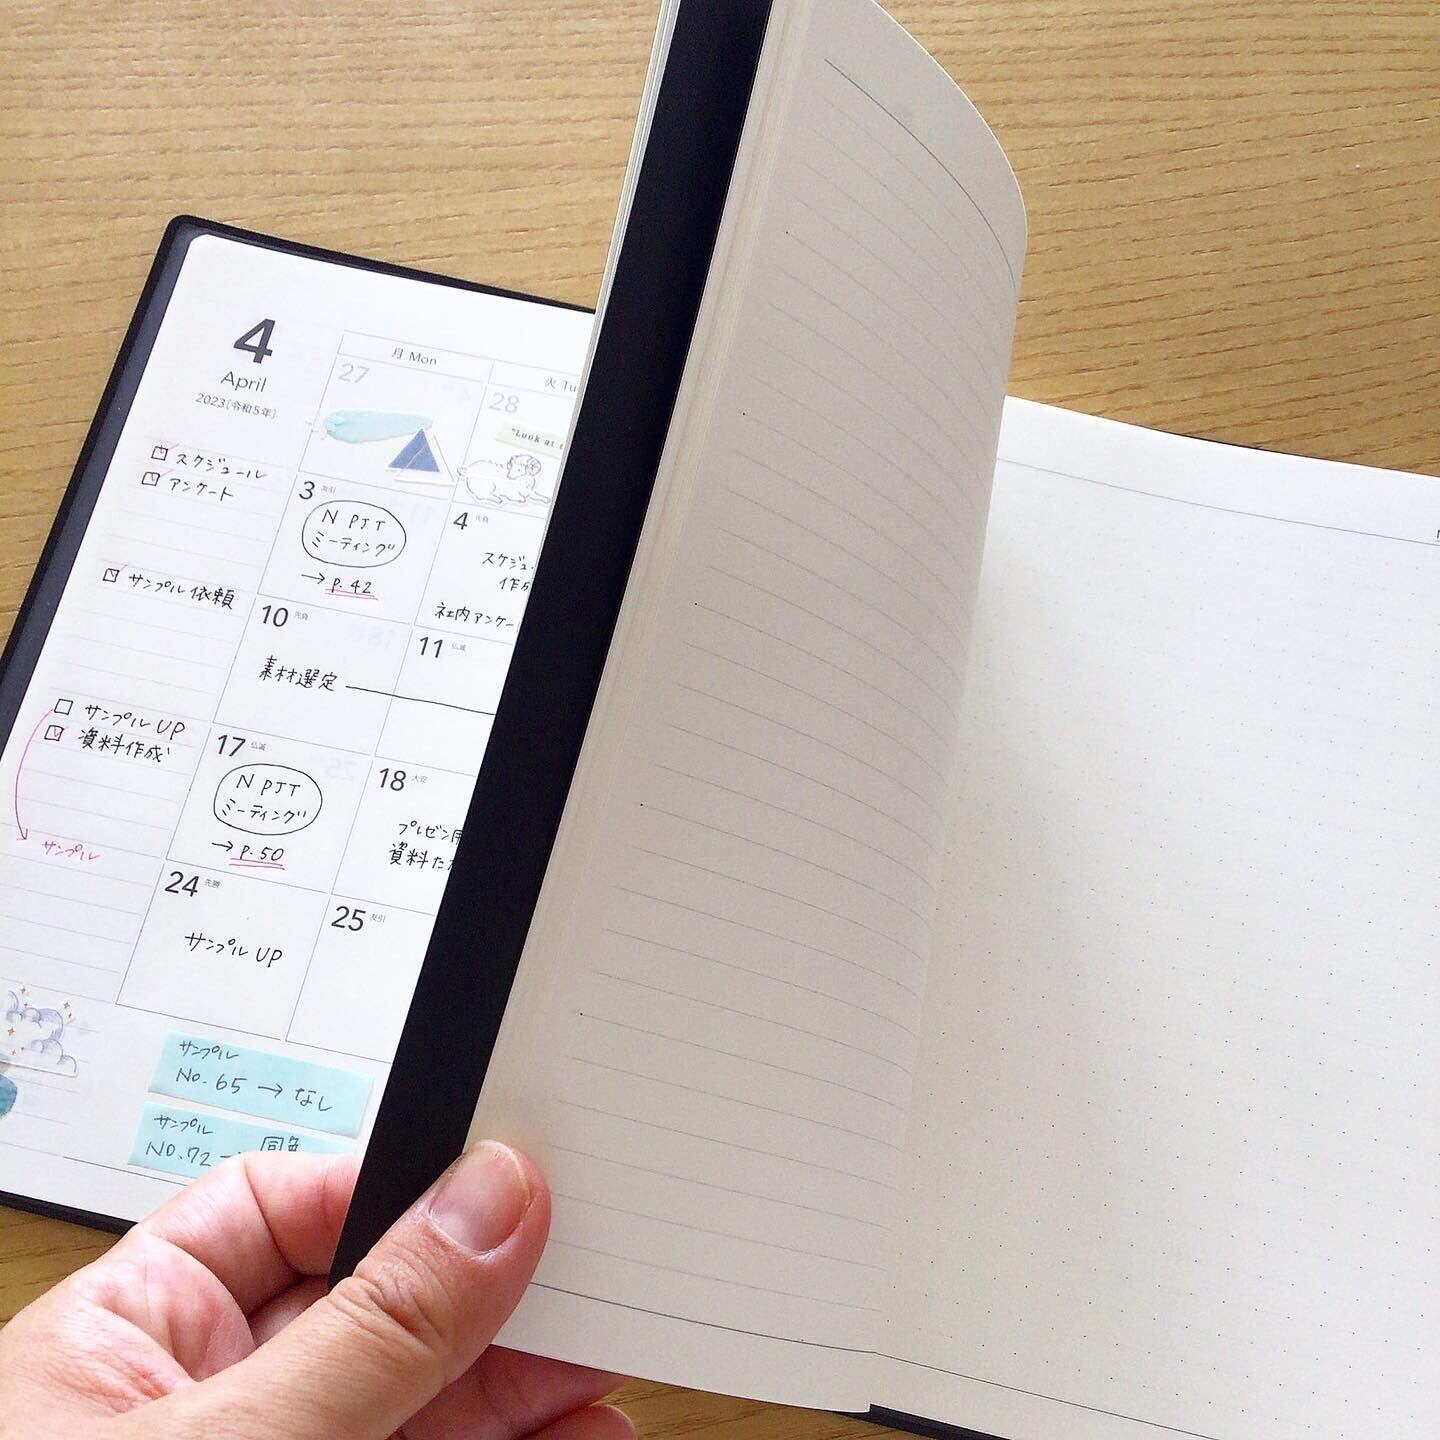 4
April
2023〔令和5年〕
月 Mon
火 Tu
27
28
"Look at t
スケジュール
アンケート
3 友引
N PJT
ミーティング
→ P.42
4 先負
スケジュ
作成
社内アンケー
サンプル依頼
10 先負
素材選定
11 仏滅
サンプル UP
資料作成
サンプル
17 仏滅
N PJT
ミーティング
→ P.50
18 大安
プレゼン用
資料た
24 先勝
サンプル UP
25 友引
サンプル
No.65 → なし
サンプル
NO.72 → 同色